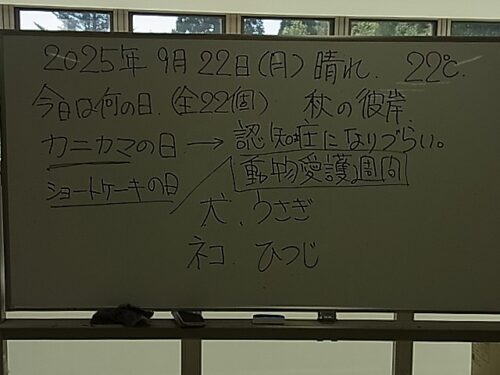 2025年9月22日(月)晴れ. 22℃.
今日は何の日.(全22個) 秋の彼岸.
カニカマの日→認知症になりづらい。
ショートケーキの日/動物愛護週間
犬、うさぎ
ネコ、ひつじ